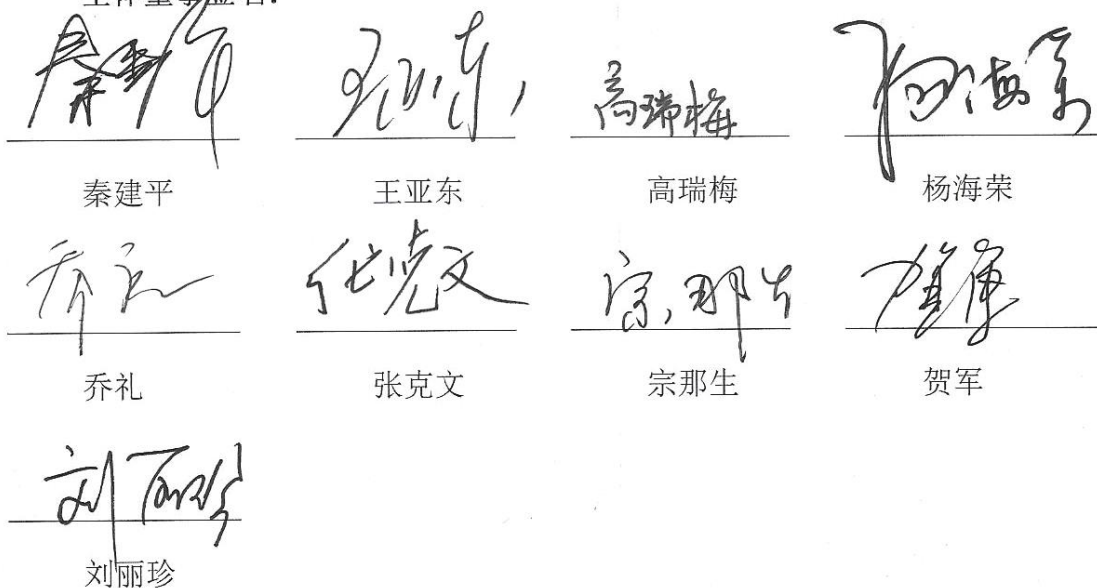 全体董事签名:
秦建平 王亚东 高瑞梅 杨海荣
秦建平 王亚东 高瑞梅 杨海荣
乔礼 张克文 宗那生 贺军
乔礼 张克文 宗那生 贺军
刘丽珍
刘丽珍